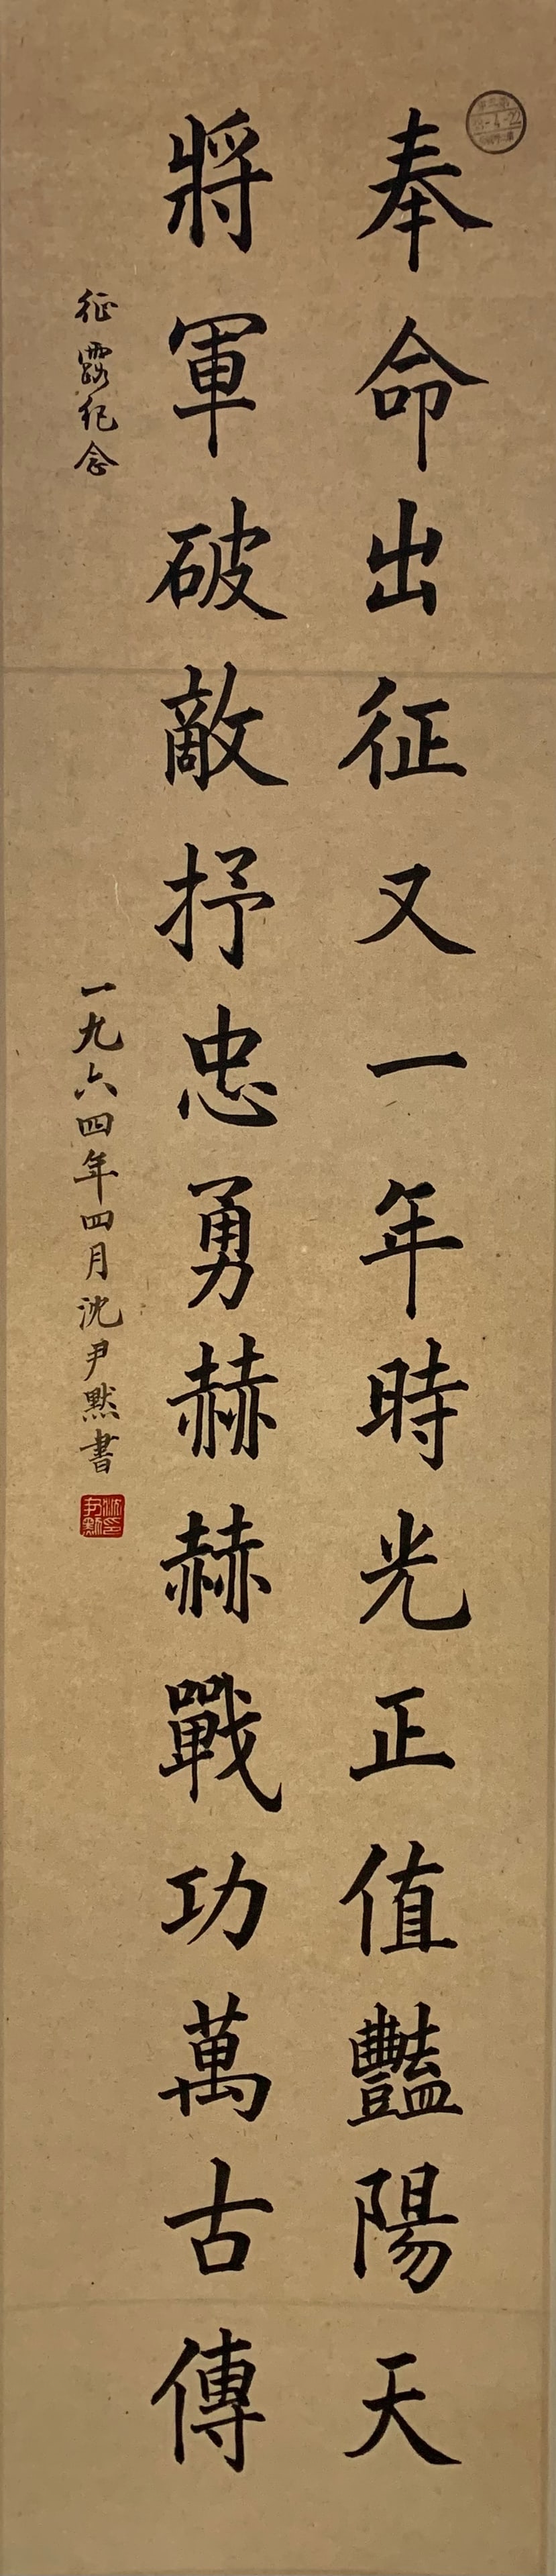 奉命出征又一年時光正值豔陽天
將軍破敵抒忠勇赫赫戰功萬古傳
征露紀念
一九六四年四月沈尹默書
沈尹默印